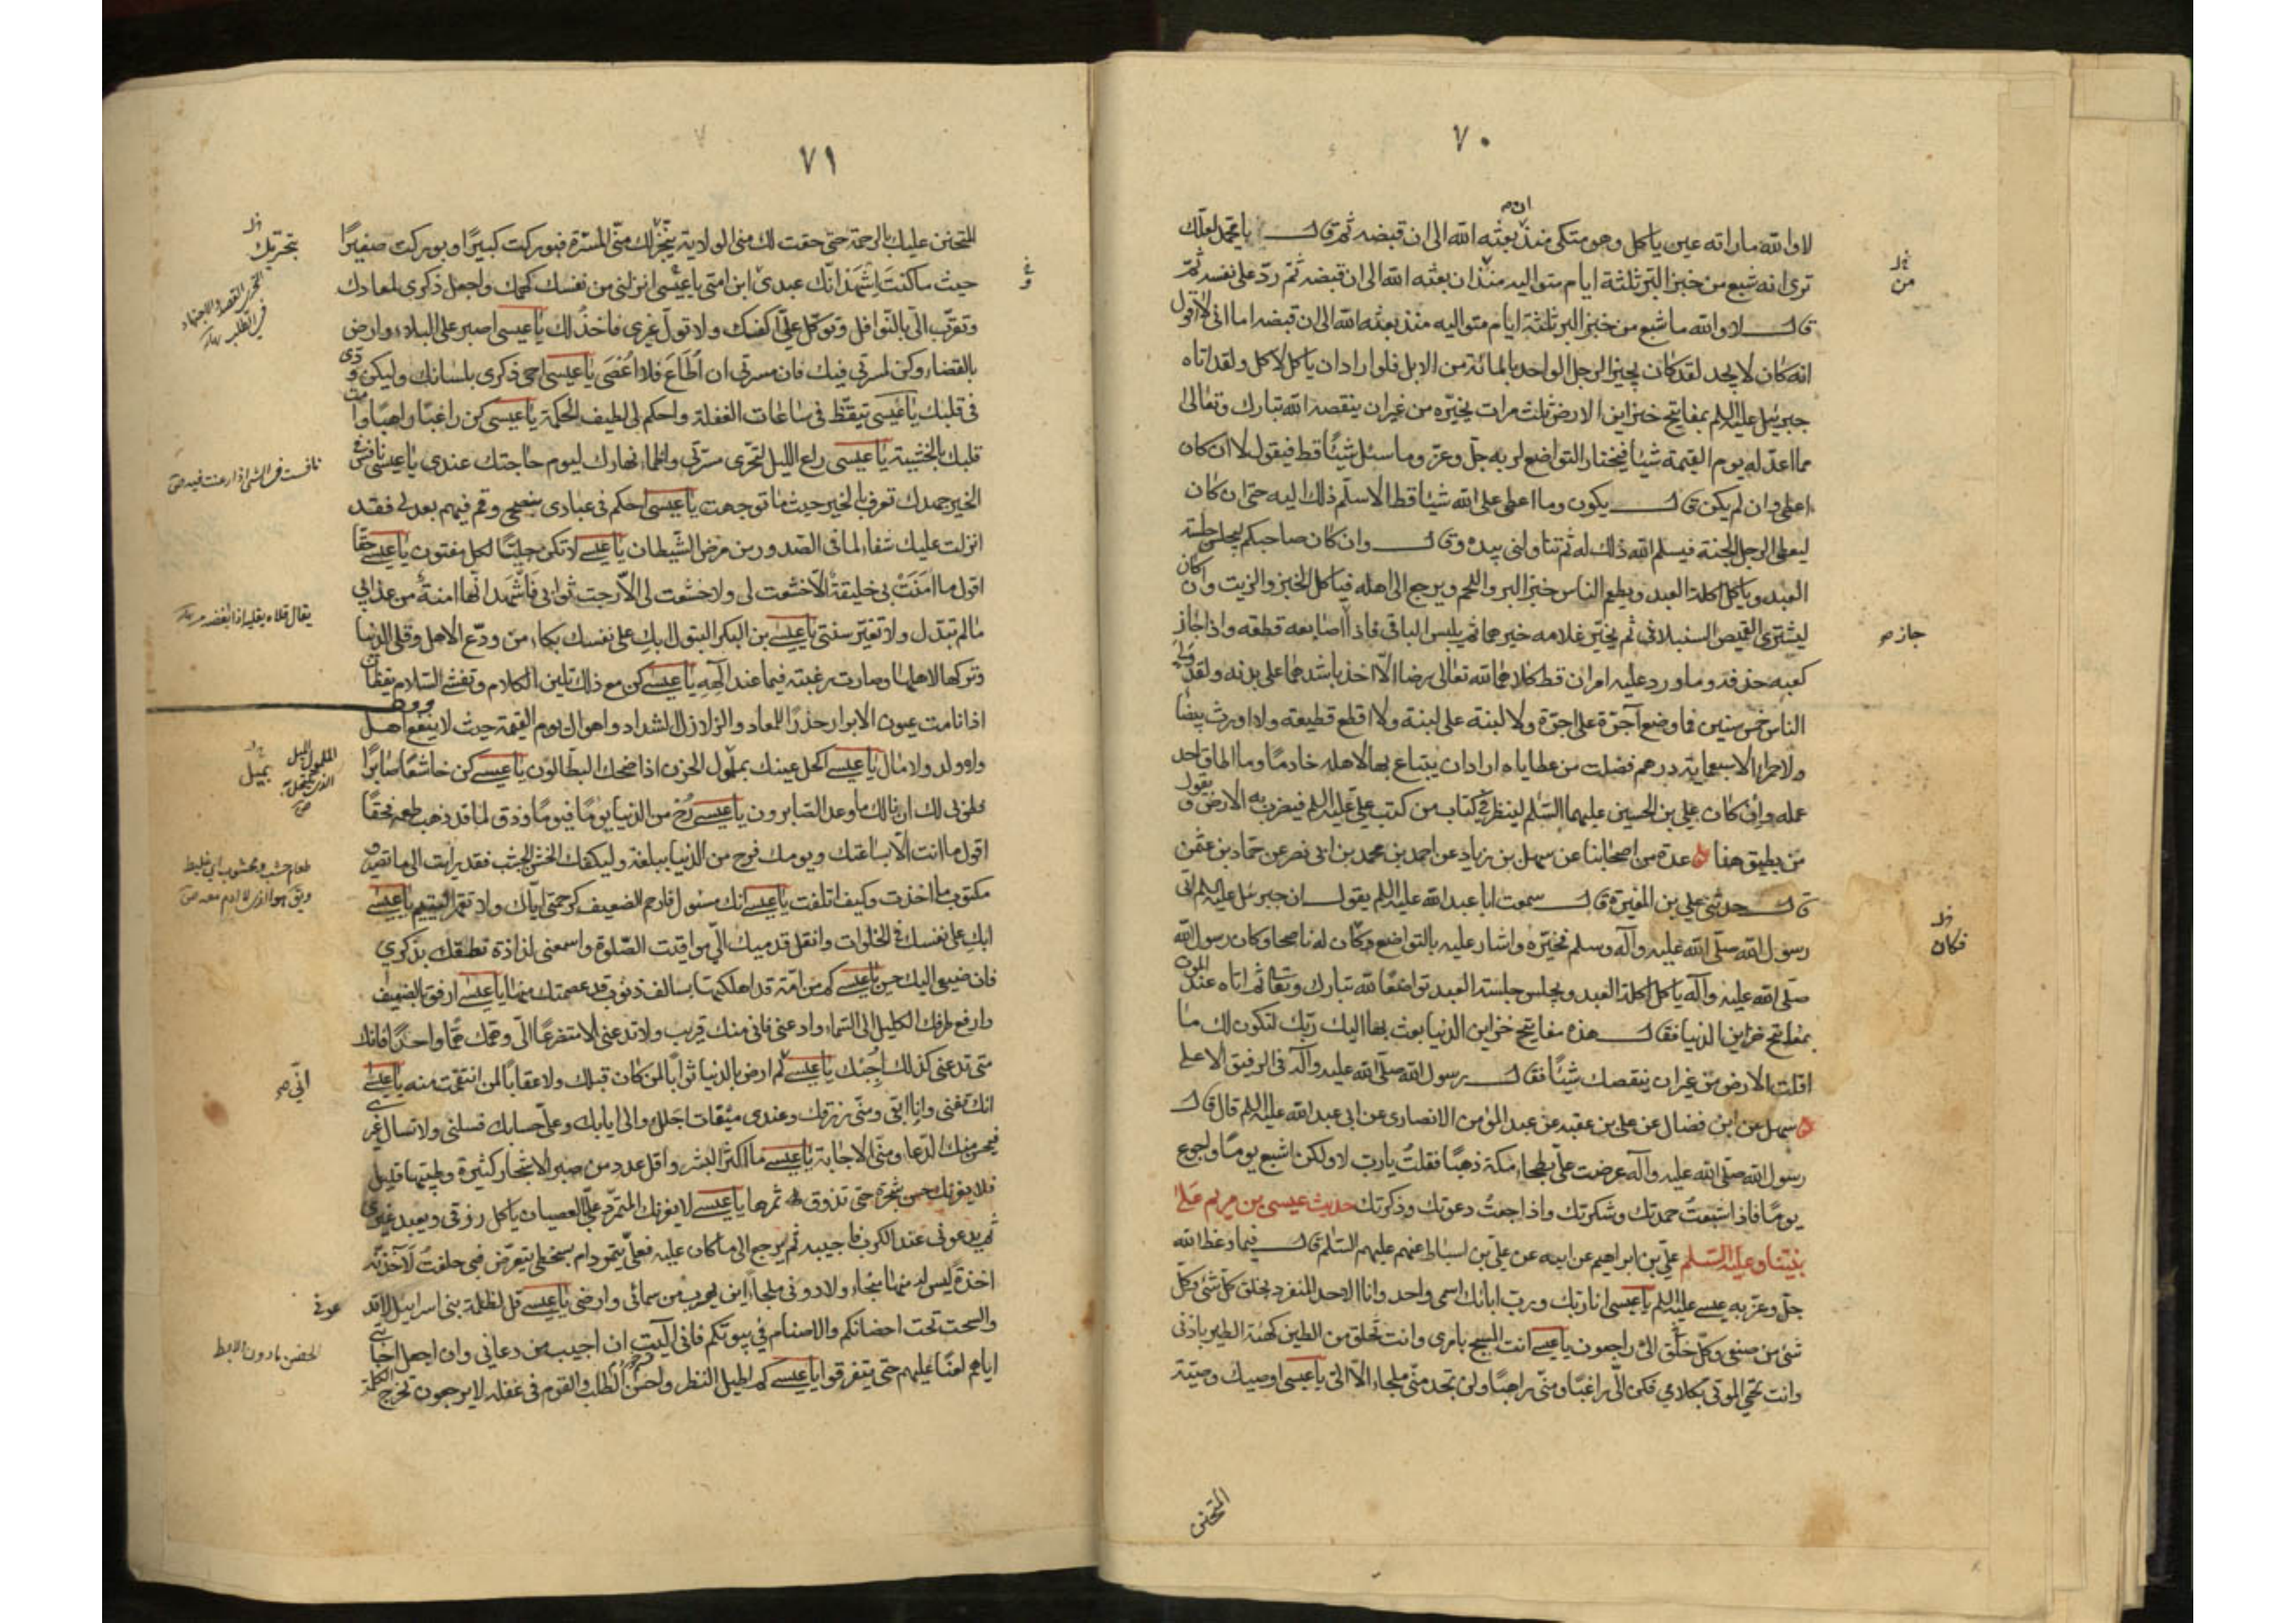 ٧٠
لا والله ما راته عين ياكل وهو متكى منذ بعثه الله الى ان قبضه ثم قال يا محمد لعلك
ترى انه شبع من خبز البر ثلثة ايام متواليه منذ ان بعثه الله الى ان قبضه ثم ردّ على نفسه ثم
قال لا والله ما شبع من خبز البر ثلثة ايام متواليه منذ بعثه الله الى ان قبضه اما انى لا اقول
انه كان لا يجد لقد كان يجيز الرجل الواحد بالمائة من الابل فلو اراد ان ياكل لاكل ولقد اتاه
جبرئيل عليه السلم بمفاتيح خزاين الارض ثلث مرات يخيّره من غير ان ينقصه الله تبارك وتعالى
مما اعدّ له يوم القيمة شيئا فيختار التواضع لربه جلّ وعزّ وما سئل شيئا قط فيقول لا ان كان
اعطى وان لم يكن قال يكون وما اعطى على الله شيئا قط الا سلّم ذلك اليه حتى ان كان
ليعطى الرجل الجنة فيسلم الله ذلك له ثم تناولنى بيده وقال وان كان صاحبكم ليجلس جلسة
العبد وياكل اكلة العبد ويطعم الناس خبز البر واللحم ويرجع الى اهله فياكل الخبز والزيت وان كان
ليشترى القميص السنبلانى ثم يخيّر غلامه خيرهما ثم يلبس الباقى فاذا اصابعه قطعه واذا جاز
كعبه حذفه وما ورد عليه امران قط كلاهما لله تعالى رضا الّا اخذ باشدهما على بدنه ولقد ولى
الناس خمس سنين فما وضع آجرّة على اجرّة ولا لبنة على لبنة ولا اقطع قطيعة ولا اورث بيضا
ولا حمرا الا سبعماية درهم فضلت من عطاياه اراد ان يبتاع بها لاهله خادمًا وما اطاق احد
عمله وان كان علي بن الحسين عليهما السّلم لينظر فى كتاب من كتب علي عليه السلم فيضرب به الارض ويقول
من يطيق هذا عدة من اصحابنا عن سهل بن زياد عن احمد بن محمد بن ابى نصر عن حمّاد بن عثمن
قال حدثنى علي بن المغيرة قال سمعت ابا عبد الله عليه السلم يقول ان جبرئيل عليه السلم اتى
رسول الله صلّى الله عليه وآله وسلم فخيّره واشار عليه بالتواضع وكان له ناصحا وكان رسول الله
صلّى الله عليه وآله ياكل اكلة العبد ويجلس جلسة العبد تواضعًا لله تبارك وتعالى ثم اتاه عند الموت
بمفاتيح خزاين الدنيا فقال هذه مفاتيح خزاين الدنيا بعث بها اليك ربّك لتكون لك ما
اقلت الارض من غير ان ينقصك شيئًا فقال رسول الله صلّى الله عليه وآله فى الرفيق الاعلى
سهل عن ابن فضال عن علي بن عقبه عن عبد المؤمن الانصارى عن ابى عبد الله عليه السلم قال قال
رسول الله صلّى الله عليه وآله عرضت علىّ بطحاء مكة ذهبًا فقلتُ يا ربّ لا ولكن اشبع يومًا واجوع
يومًا فاذا اشبعتُ حمدتك وشكرتك واذا جعتُ دعوتك وذكرتك حديث عيسى بن مريم على
نبيّنا وعليه السّلم عليّ بن ابراهيم عن ابيه عن عليّ بن اسباط عنهم عليهم السّلم قال فيما وعظ الله
جلّ وعزّ به عيسى عليه السلم يا عيسى انا ربّك وربّ ابائك اسمى واحد وانا الاحد المنفرد بخلق كل شئ وكلّ
شئ من صنعى وكلّ خلق الىّ راجعون يا عيسى انت المسيح بامرى وانت تخلق من الطين كهيئة الطير باذنى
وانت تحيى الموتى بكلامي فكن الىّ راغبًا ومنّى راهبًا ولن تجد منّى ملجاء الّا الىّ يا عيسى اوصيك وصيّة
المتحنن
من
جاز
فكان
٧١
المتحنن عليك بالرحمة حتى حقت لك منى الولاية بتحرّيك منّى المسرّة فبوركت كبيرًا وبوركت صغيرًا
حيث ما كنت اشهد انّك عبدى ابن امتى يا عيسى انزلنى من نفسك كهمّك واجعل ذكرى لمعادك
وتقرّب الىّ بالنّوافل وتوكّل علىّ اكفك ولا تولّ غيرى فاخذلك يا عيسى اصبر على البلاء وارض
بالقضاء وكن لمسرتى فيك فان مسرتى ان اُطاع فلا اُعصى يا عيسى احى ذكرى بلسانك وليكن ودّى
فى قلبك يا عيسى تيقّظ فى ساعات الغفلة واحكم لى لطيف الحكمة يا عيسى كن راغبًا وراهبًا وامت
قلبك بالخشية يا عيسى راع الليل لتحرّى مسرّتى واظما نهارك ليوم حاجتك عندى يا عيسى نافس فى
الخير جهدك تعرف بالخير حيث ما توجهت يا عيسى احكم فى عبادى بنصحى وقم فيهم بعدلى فقد
انزلت عليك شفاء لما فى الصّدور من مرض الشّيطان يا عيسى لا تكن جليسًا لكل مفتون يا عيسى حقّا
اقول ما امنَت بى خليقة الّا خشعت لى ولا خشعت لى الّا رجت ثوابى فاشهد انّها امنة من عذابى
ما لم تبدّل ولا تغيّر سنتى يا عيسى بن البكر البتول ابك على نفسك بكاء من ودّع الاهل وقلى الدّنيا
وتركها لاهلها وصارت رغبته فيما عند الهه يا عيسى كن مع ذلك تلين الكلام وتفشى السّلام يقظان
اذا نامت عيون الابرار حذرًا للمعاد والزلازل الشداد واهوال يوم القيمة حيث لا ينفع اهل
ولا ولد ولا مال يا عيسى اكحل عينك بملمول الحزن اذا ضحك البطّالون يا عيسى كن خاشعًا صابرًا
فطوبى لك ان نالك ما وعد الصّابرون يا عيسى رُح من الدّنيا يومًا فيومًا وذق لما قد ذهب طعمه فحقًا
اقول ما انت الّا بساعتك ويومك فرح من الدّنيا ببلغة وليكفك الخشن الجشب فقد رايت الى ما تصير
مكتوب ما اخذت وكيف اتلفت يا عيسى انك مسئول فارحم الضعيف كرحمتى ايّاك ولا تقهر اليتيم يا عيسى
ابك على نفسك فى الخلوات وانقل قدميك الى مواقيت الصّلوة واسمعنى لذاذة نطقك بذكري
فان صنيعى اليك حسن يا عيسى كم من امّة قد اهلكتها بسالف ذنوب قد عصمتك منها يا عيسى ارفق بالضعيف
وارفع طرفك الكليل الى السّماء وادعنى فانى منك قريب ولا تدعنى الا متضرعًا الىّ وهمّك همًّا واحدًا فانك
متى تدعنى كذلك اُجِبك يا عيسى لم ارض بالدنيا ثوابًا لمن كان قبلك ولا عقابًا لمن انتقمت منه يا عيسى
انك تفنى وانا ابقى ومنّى رزقك وعندى ميقات اجلك والىّ ايابك وعلىّ حسابك فسلنى ولا تسال غيرى
فيحسن منك الدّعا ومنّى الاجابة يا عيسى ما اكثر البشر واقل عدد من صبر الاشجار كثيرة وطيّبها قليل
فلا يغرنك حسن شجرة حتى تذوق ثمرها يا عيسى لا يغرنك المتمرّد علىّ بالعصيان ياكل رزقى ويعبد غيرى
ثم يدعونى عند الكرب فاجيبه ثم يرجع الى ما كان عليه فعلىّ يتمرد ام بسخطى يتعرّض فبى حلفتُ لآخذنّه
اخذة ليس له منها منجاء ولا دونى ملجاء اين يهرب من سمائى وارضى يا عيسى قل لظلمة بنى اسرائيل لا تدعونى
والسحت تحت احضانكم والاصنام فى بيوتكم فانى آليت ان اجيب من دعانى وان اجعل اجابتى
اياهم لعنًا عليهم حتى يتفرقوا يا عيسى كم اطيل النظر واحسن الطلب والقوم فى غفلة لا يرجعون تخرج الكلمة
بتحرّيك
التحرّى القصد والاجتهاد
فى الطلب
نافست فى الشئ اذا رغبت فيه
يقال قلاه يقليه اذا ابغضه
الملمول الميل
الذى يكتحل به
بميل
طعام جشب ومجشوب اى غليظ
ويق هو الذى لا ادم معه
انّى
عونى
الحضن ما دون الابط